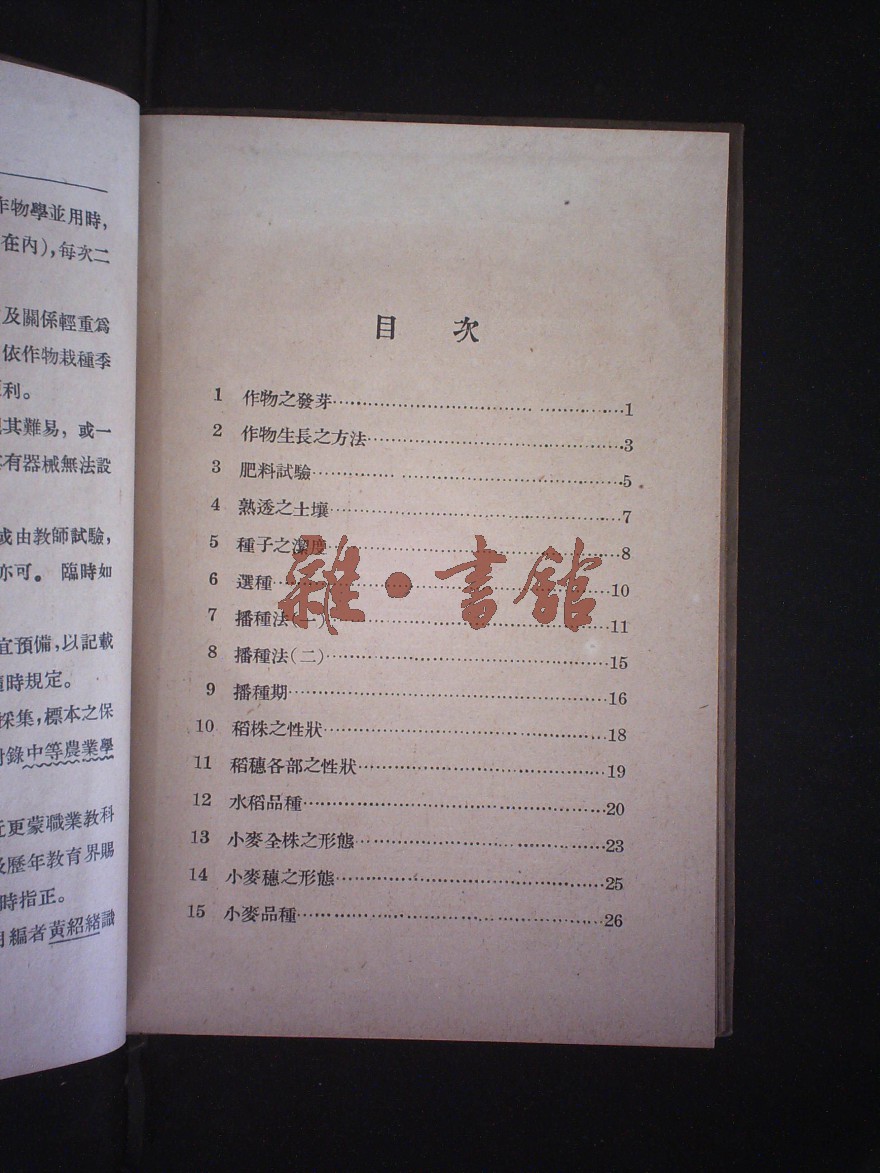 作物學並用時,
在內),每次二
及關係輕重爲
依作物栽種季
利。
其難易, 或一
有器械無法設
或由教師試驗,
亦可。 臨時如
宜預備,以記載
隨時規定。
採集,標本之保
附錄中等農業學
更蒙職業教科
及歷年教育界賜
時指正。
編者黃紹緒識
目 次
1 作物之發芽……1
2 作物生長之方法……3
3 肥料試驗……5
4 熟透之土壤……7
5 種子之潔度……8
6 選種……10
7 播種法(一)……11
8 播種法(二)……15
9 播種期……16
10 稻株之性狀……18
11 稻穗各部之性狀……19
12 水稻品種……20
13 小麥全株之形態……23
14 小麥穗之形態……25
15 小麥品種……26
雜·書館